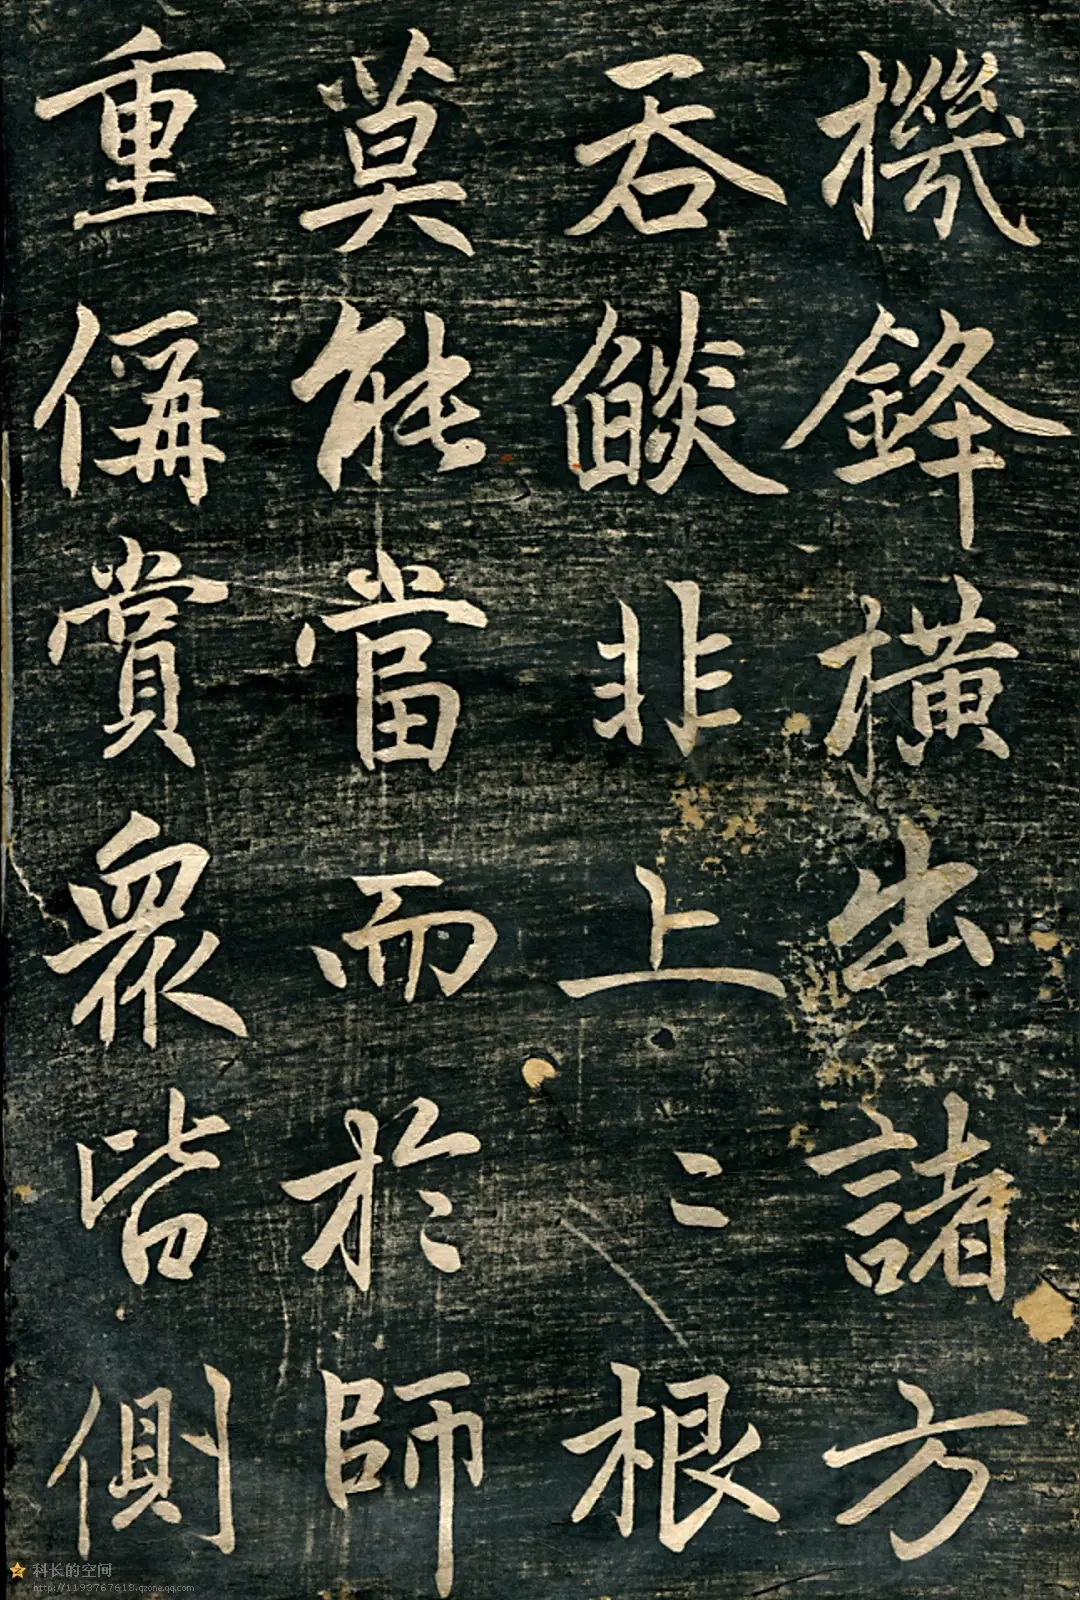 機鋒橫出諸方
吞燄非上〻根
莫能當而於師
重偁賞衆皆側
科长的空间
http://1199767618.qzone.qq.com